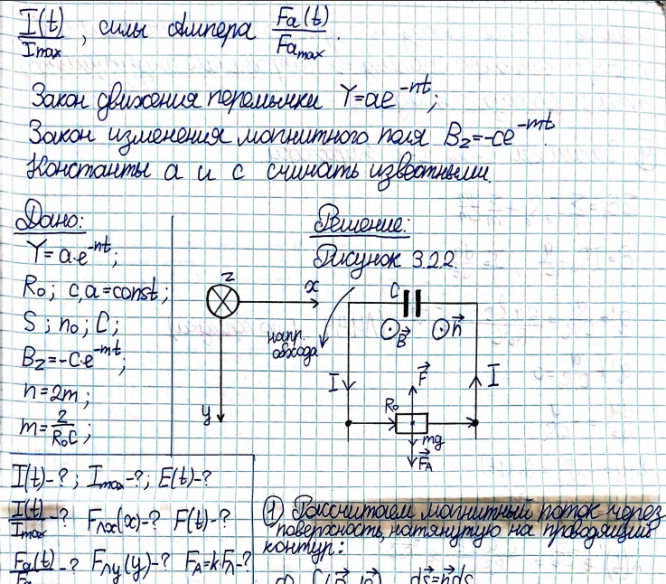 I(t)/Imax, силы Ампера Fa(t)/Famax.
Закон движения перемычки Y=ae^-nt;
Закон изменения магнитного поля Bz=-ce^-mt.
Константы a и c считать известными.
Дано:
Y=a·e^-nt;
R₀; c,a=const;
S; n₀; C;
Bz=-c·e^-mt;
n=2m;
m=2/R₀C;
I(t)-?; Imax-?; E(t)-?
I(t)/Imax-? FΛx(x)-? F(t)-?
Fa(t)/Fa -? FΛy(y)-? FA=k·FΛ-?
Решение:
Рисунок 3.2.2.
z
x
y
напр.
обхода
C
B⃗ n⃗
I F⃗ I
R₀
mg
F⃗A
① Рассчитаем магнитный поток через
поверхность, натянутую на проводящий
контур:
dS⃗=n⃗dS